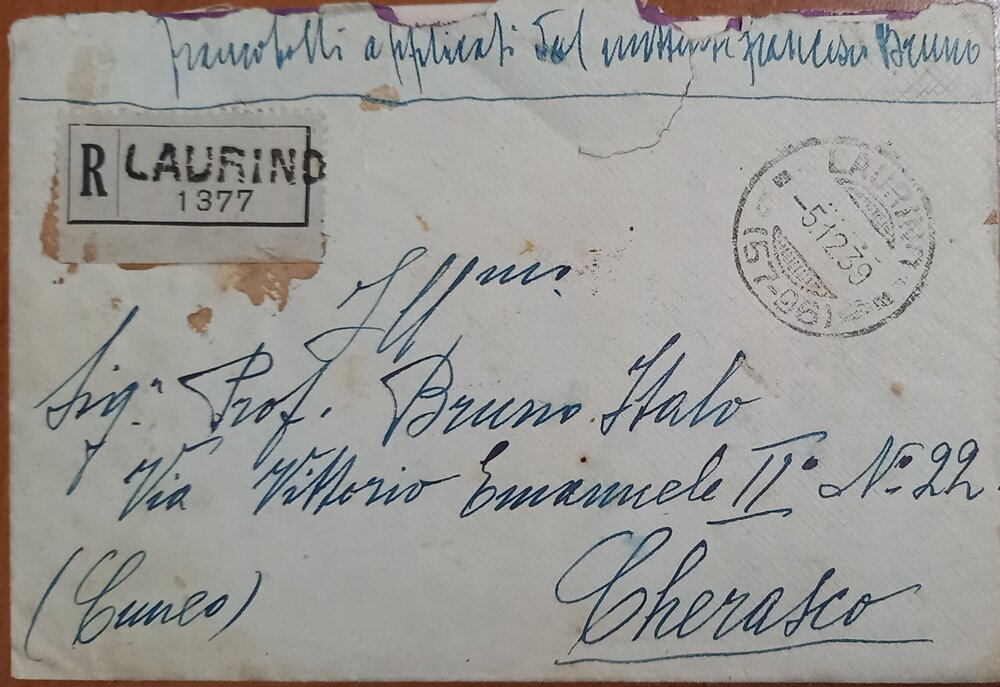 francobolli applicati dal mittente Francesco Bruno
R LAURINO
1377
LAURINO
-5.12.39
(57-96)
Ill/mo
Sig.r Prof. Bruno Italo
Via Vittorio Emanuele II° No 22
(Cuneo) Cherasco